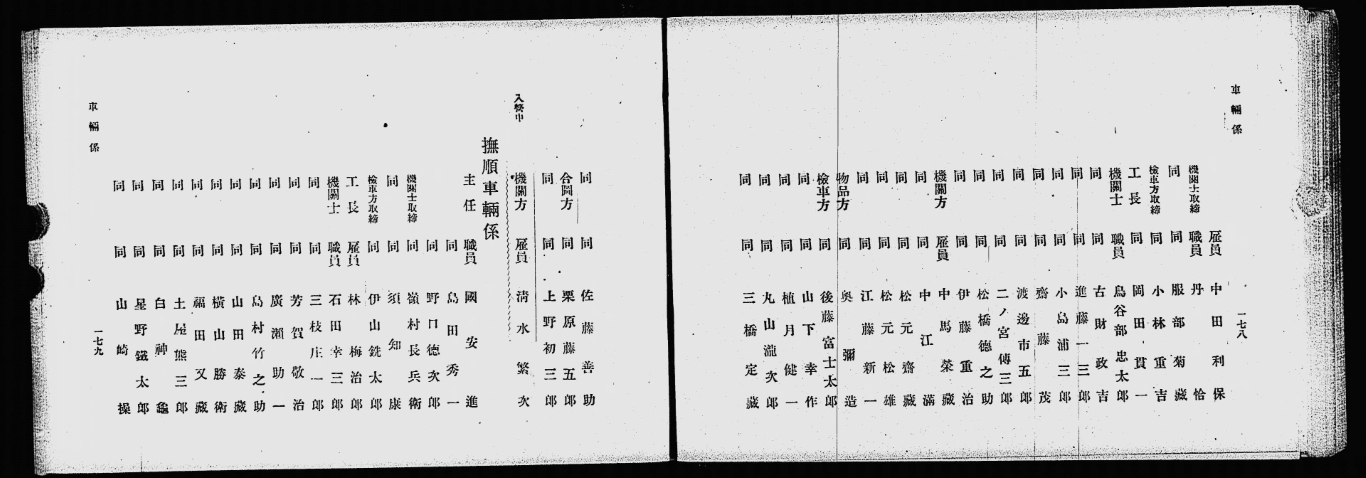 車輛係
一七八
雇員 中田利保
機關士取締 職員 丹恰
同 同 服部菊藏
檢車方取締 同 小林重吉
工長 同 岡田貫一
機關士 職員 鳥谷部忠太郎
同 同 古財政吉
同 同 進藤一三郎
同 同 小島浦三郎
同 同 齋藤茂
同 同 渡邊市五郎
同 同 二ノ宮傳三郎
同 同 松橋德之助
同 同 伊藤重治
機關方 雇員 中馬榮藏
同 同 中江滿
同 同 松元齋藏
同 同 松元松雄
同 同 江藤新一
物品方 同 奥彌造
檢車方 同 後藤富士太郎
同 同 山下幸作
同 同 植月健一
同 同 丸山瀧次郎
同 同 三橋定藏
同 同 佐藤善助
合圖方 同 栗原藤五郎
同 同 上野初三郎
入營中 機關方 雇員 清水繁次
撫順車輛係
主任 職員 國安進
同 島田秀一
同 野口德次郎
機關士取締 同 嶺村長兵衛
同 同 須知康
檢車方取締 同 伊山銑太郎
工長 雇員 林梅治郎
機關士 職員 石田幸三郎
同 同 三枝庄一郎
同 同 芳賀敬治
同 同 廣瀬助一
同 同 島村竹之助
同 同 山田泰藏
同 同 横山勝衛
同 同 福田又藏
同 同 土屋熊三郎
同 同 白神龜
同 同 星野鐵太郎
同 同 山崎操
車輛係
一七九